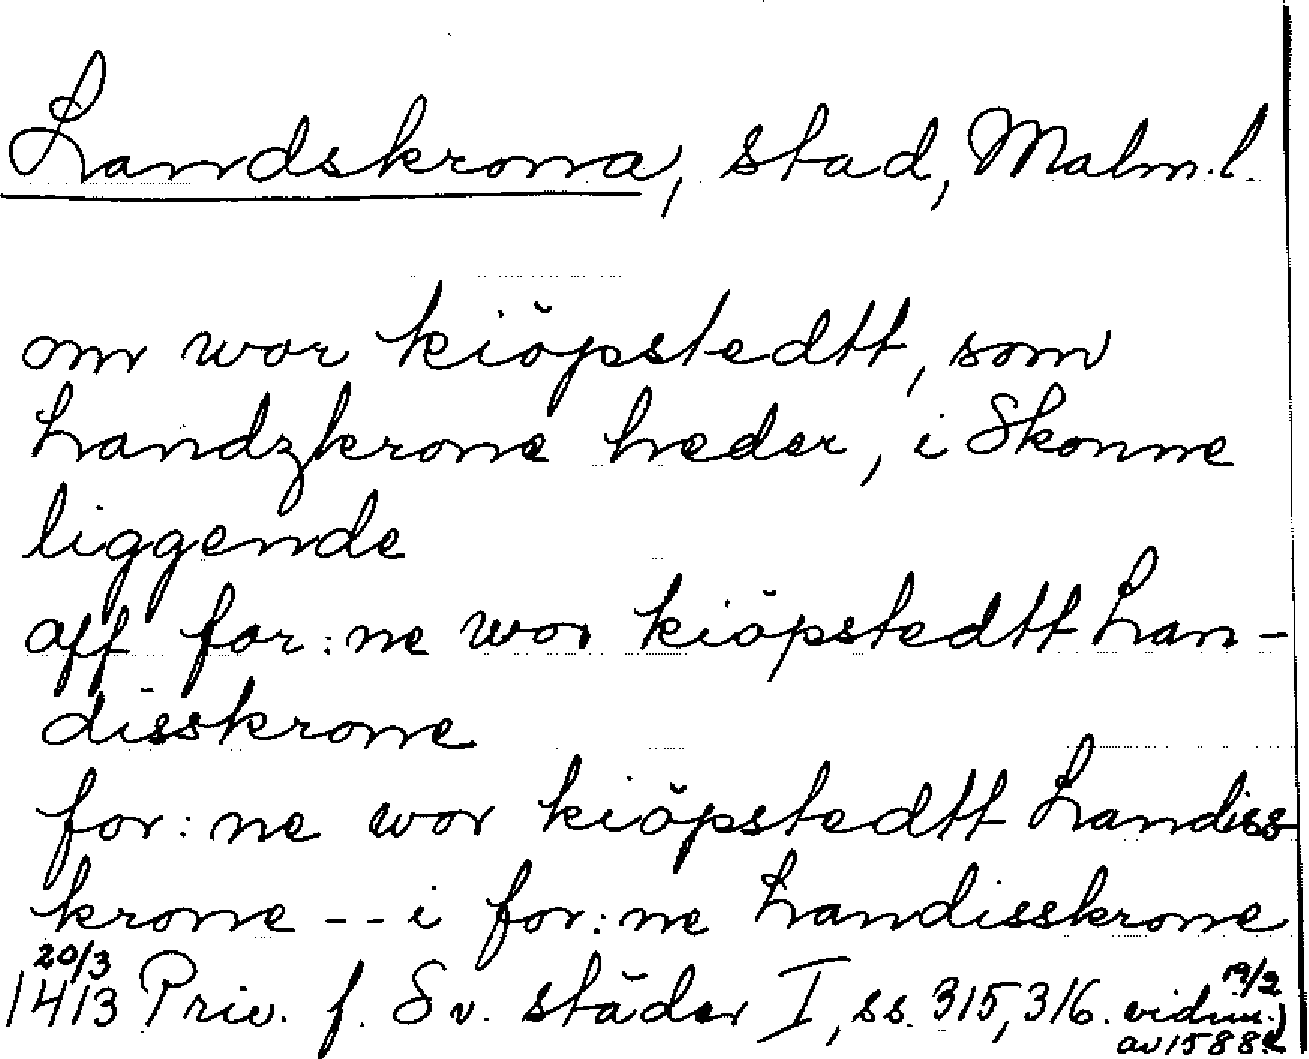 Landskrona, stad, Malm.l.
om wor kiöpstedtt, som
Landzkrone heder, i Skonne
liggende
aff for:ne wor kiöpstedtt Lan-
disskrone
for:ne wor kiöpstedtt Landiss
krone -- i for:ne Landisskrone
20/3 19/2
1413 Priv. f. Sv. städer I, ss. 315, 316. vidim.
av 1588